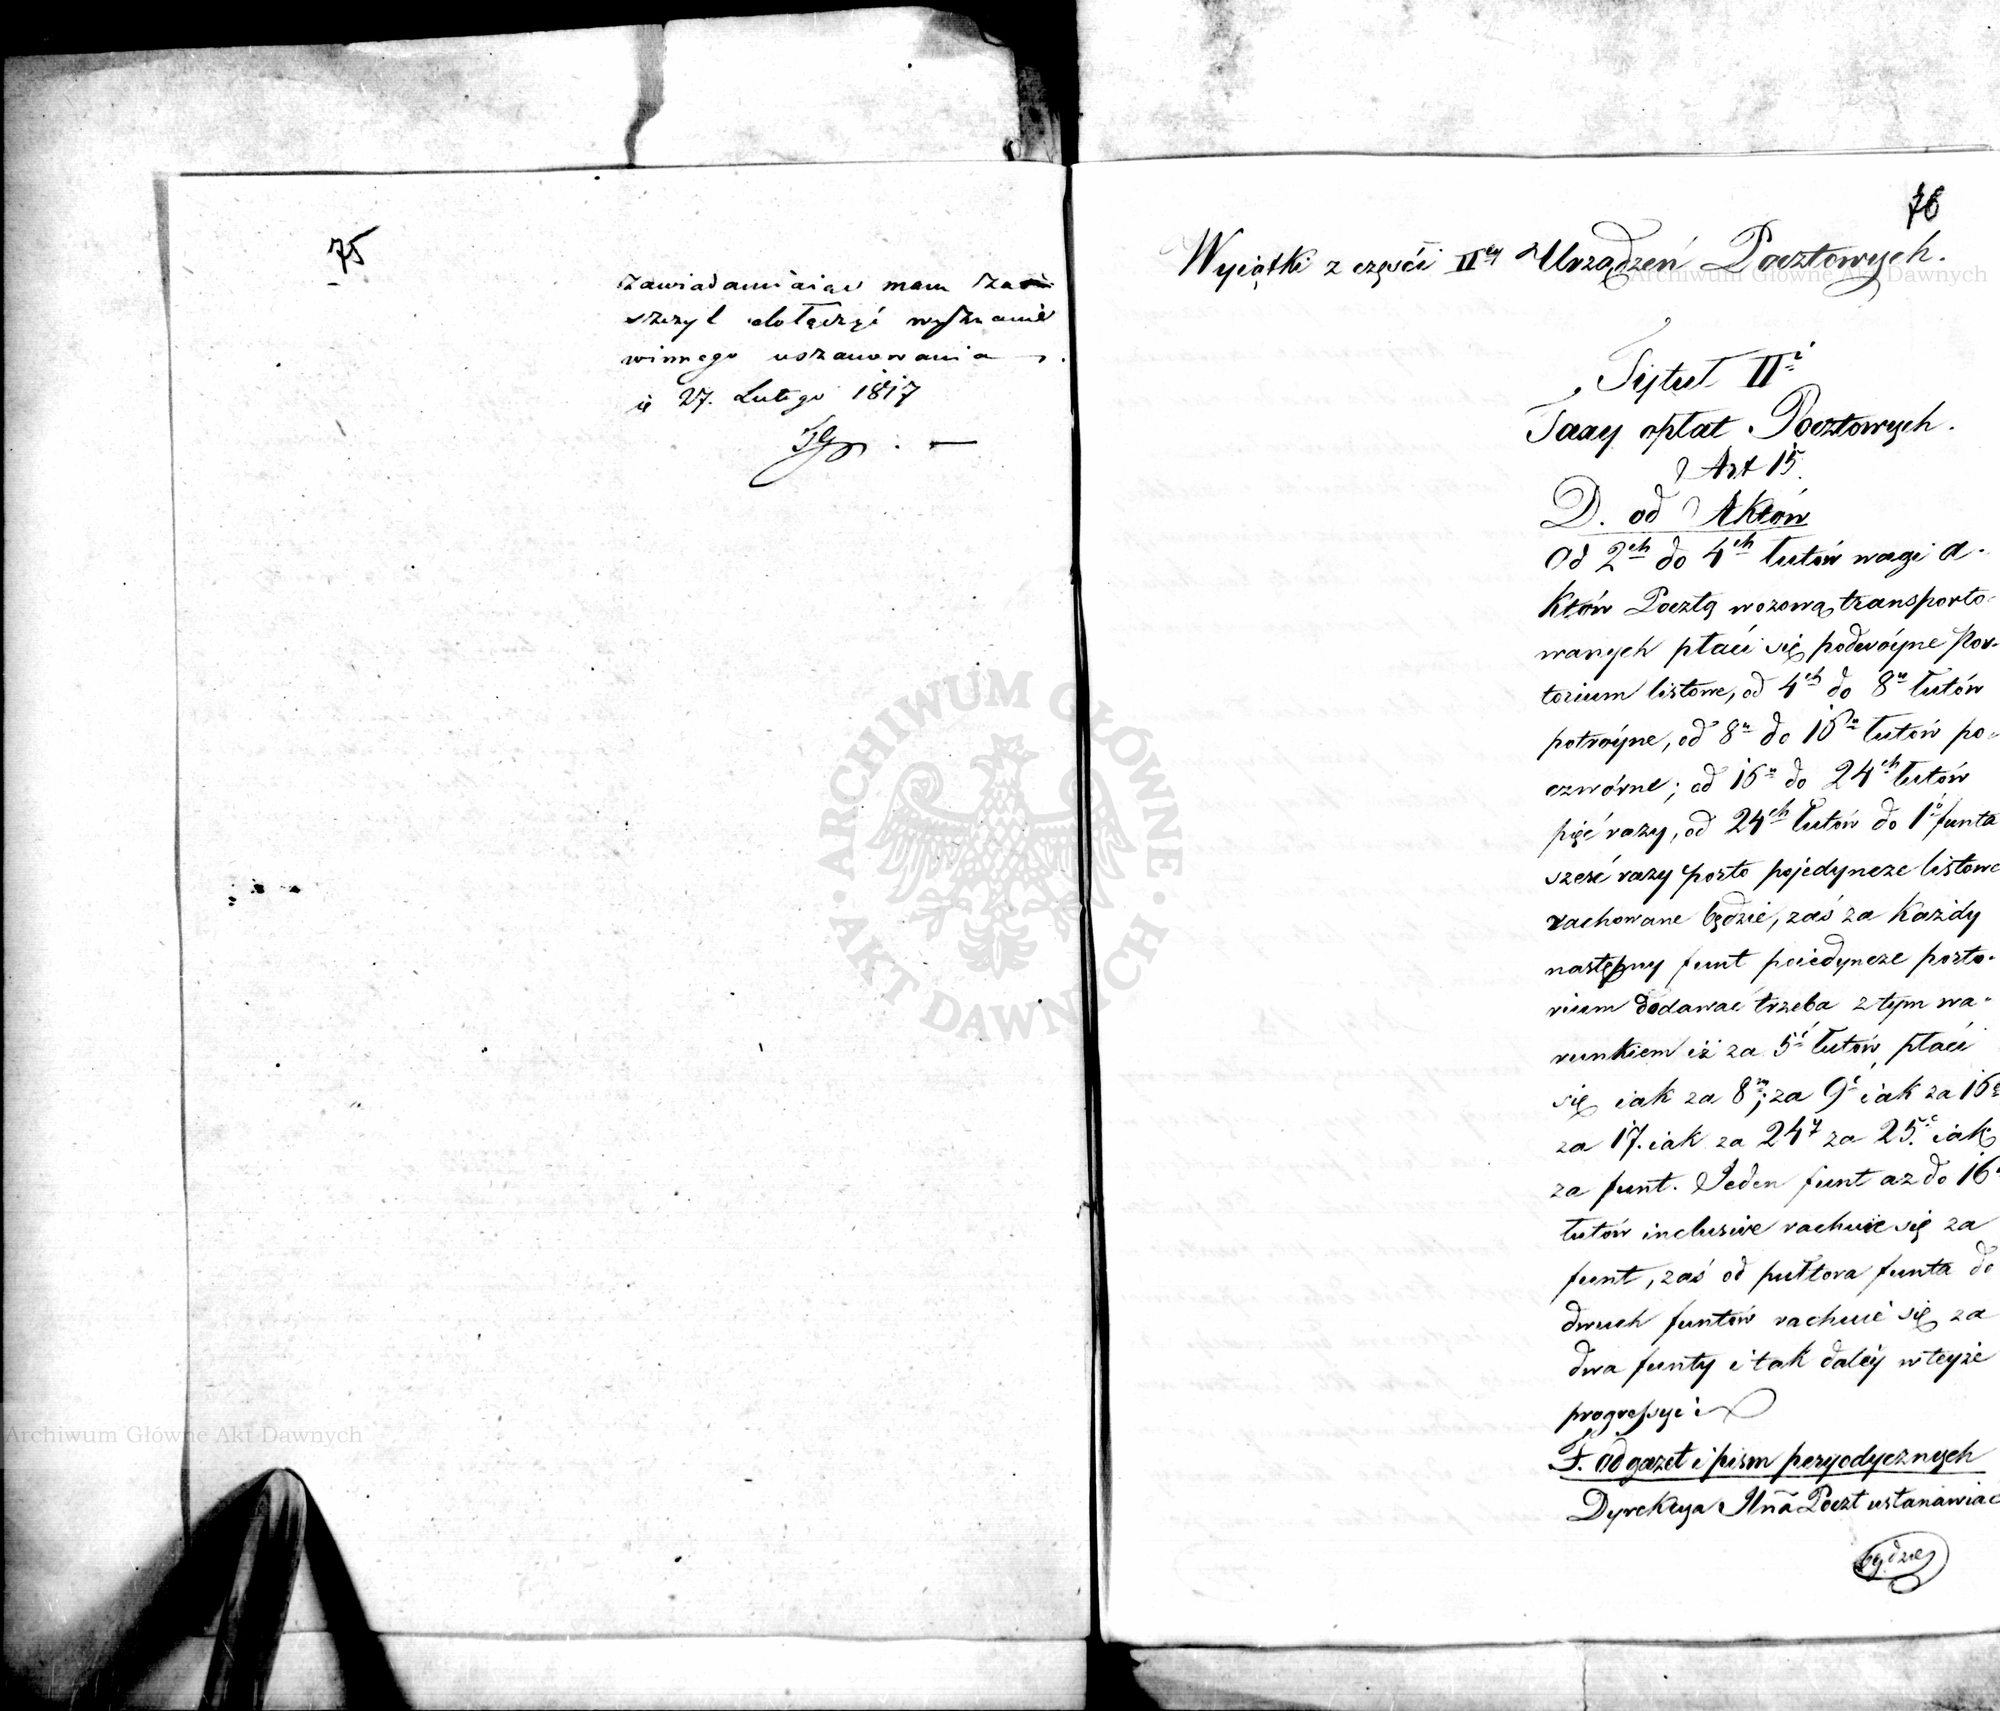 75
zawiadamiaiąc mam za
szczyt dołączyć wyznanie
winnego uszanowania
27. Lutego 1817
76
Wyiątki z części IIey Urządzeń Pocztowych.
Tytuł IIi
Taxy opłat Pocztowych.
Art 15.
D. od Aktów
Od 2ch do 4ch łutów wagi a-
któw Pocztą wozową transporto-
wanych płaci się podwóyne Por-
torium listowe, od 4ch do 8u łutów
potróyne, od 8u do 16u łutów po-
czwórne; od 16u do 24ch łutów
pięć razy, od 24ch łutów do 1o funta
sześć razy porto pojedyncze listowe
rachowane będzie, zaś za każdy
następny funt poiedyncze porto-
rium dodawać trzeba z tym wa-
runkiem iż za 5ć łutów płaci
się iak za 8m; za 9ć iak za 16
za 17. iak za 24y za 25.ć iak
za funt. Jeden funt aż do 16
łutów inclusive rachuie się za
funt, zaś od pułtora funta do
dwuch funtów rachuie się za
dwa funty i tak daléy w teyże
progressyi
F. Od gazet i pism peryodycznych
Dyrekcya Jlna Poczt ustanawiać
będzie
ARCHIWUM GŁÓWNE AKT DAWNYCH
Archiwum Główne Akt Dawnych
Archiwum Główne Akt Dawnych